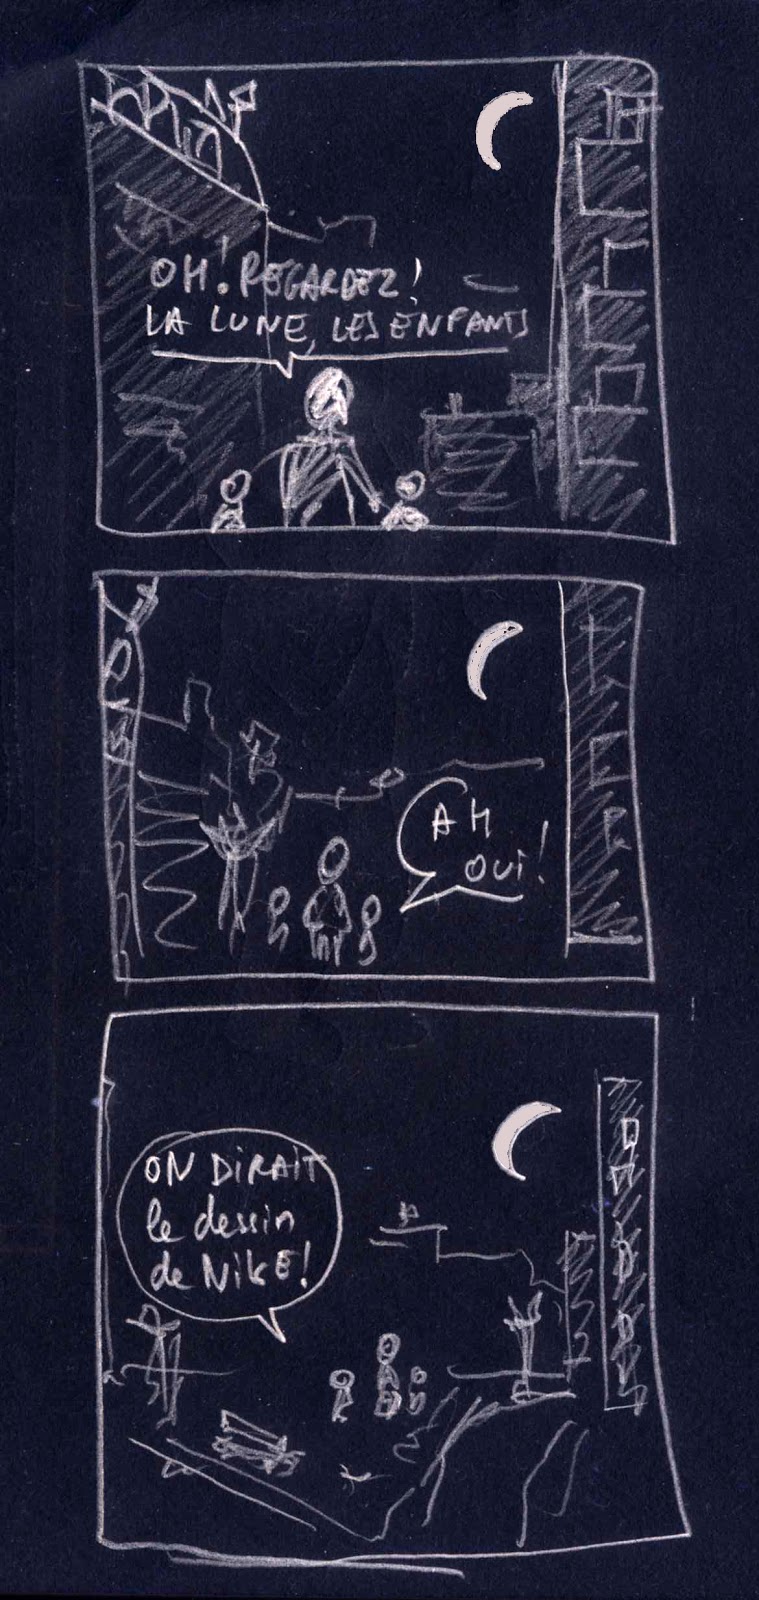 OH! REGARDEZ!
LA LUNE, LES ENFANTS
AH
OUI!
ON DIRAIT
le dessin
de NIKE!